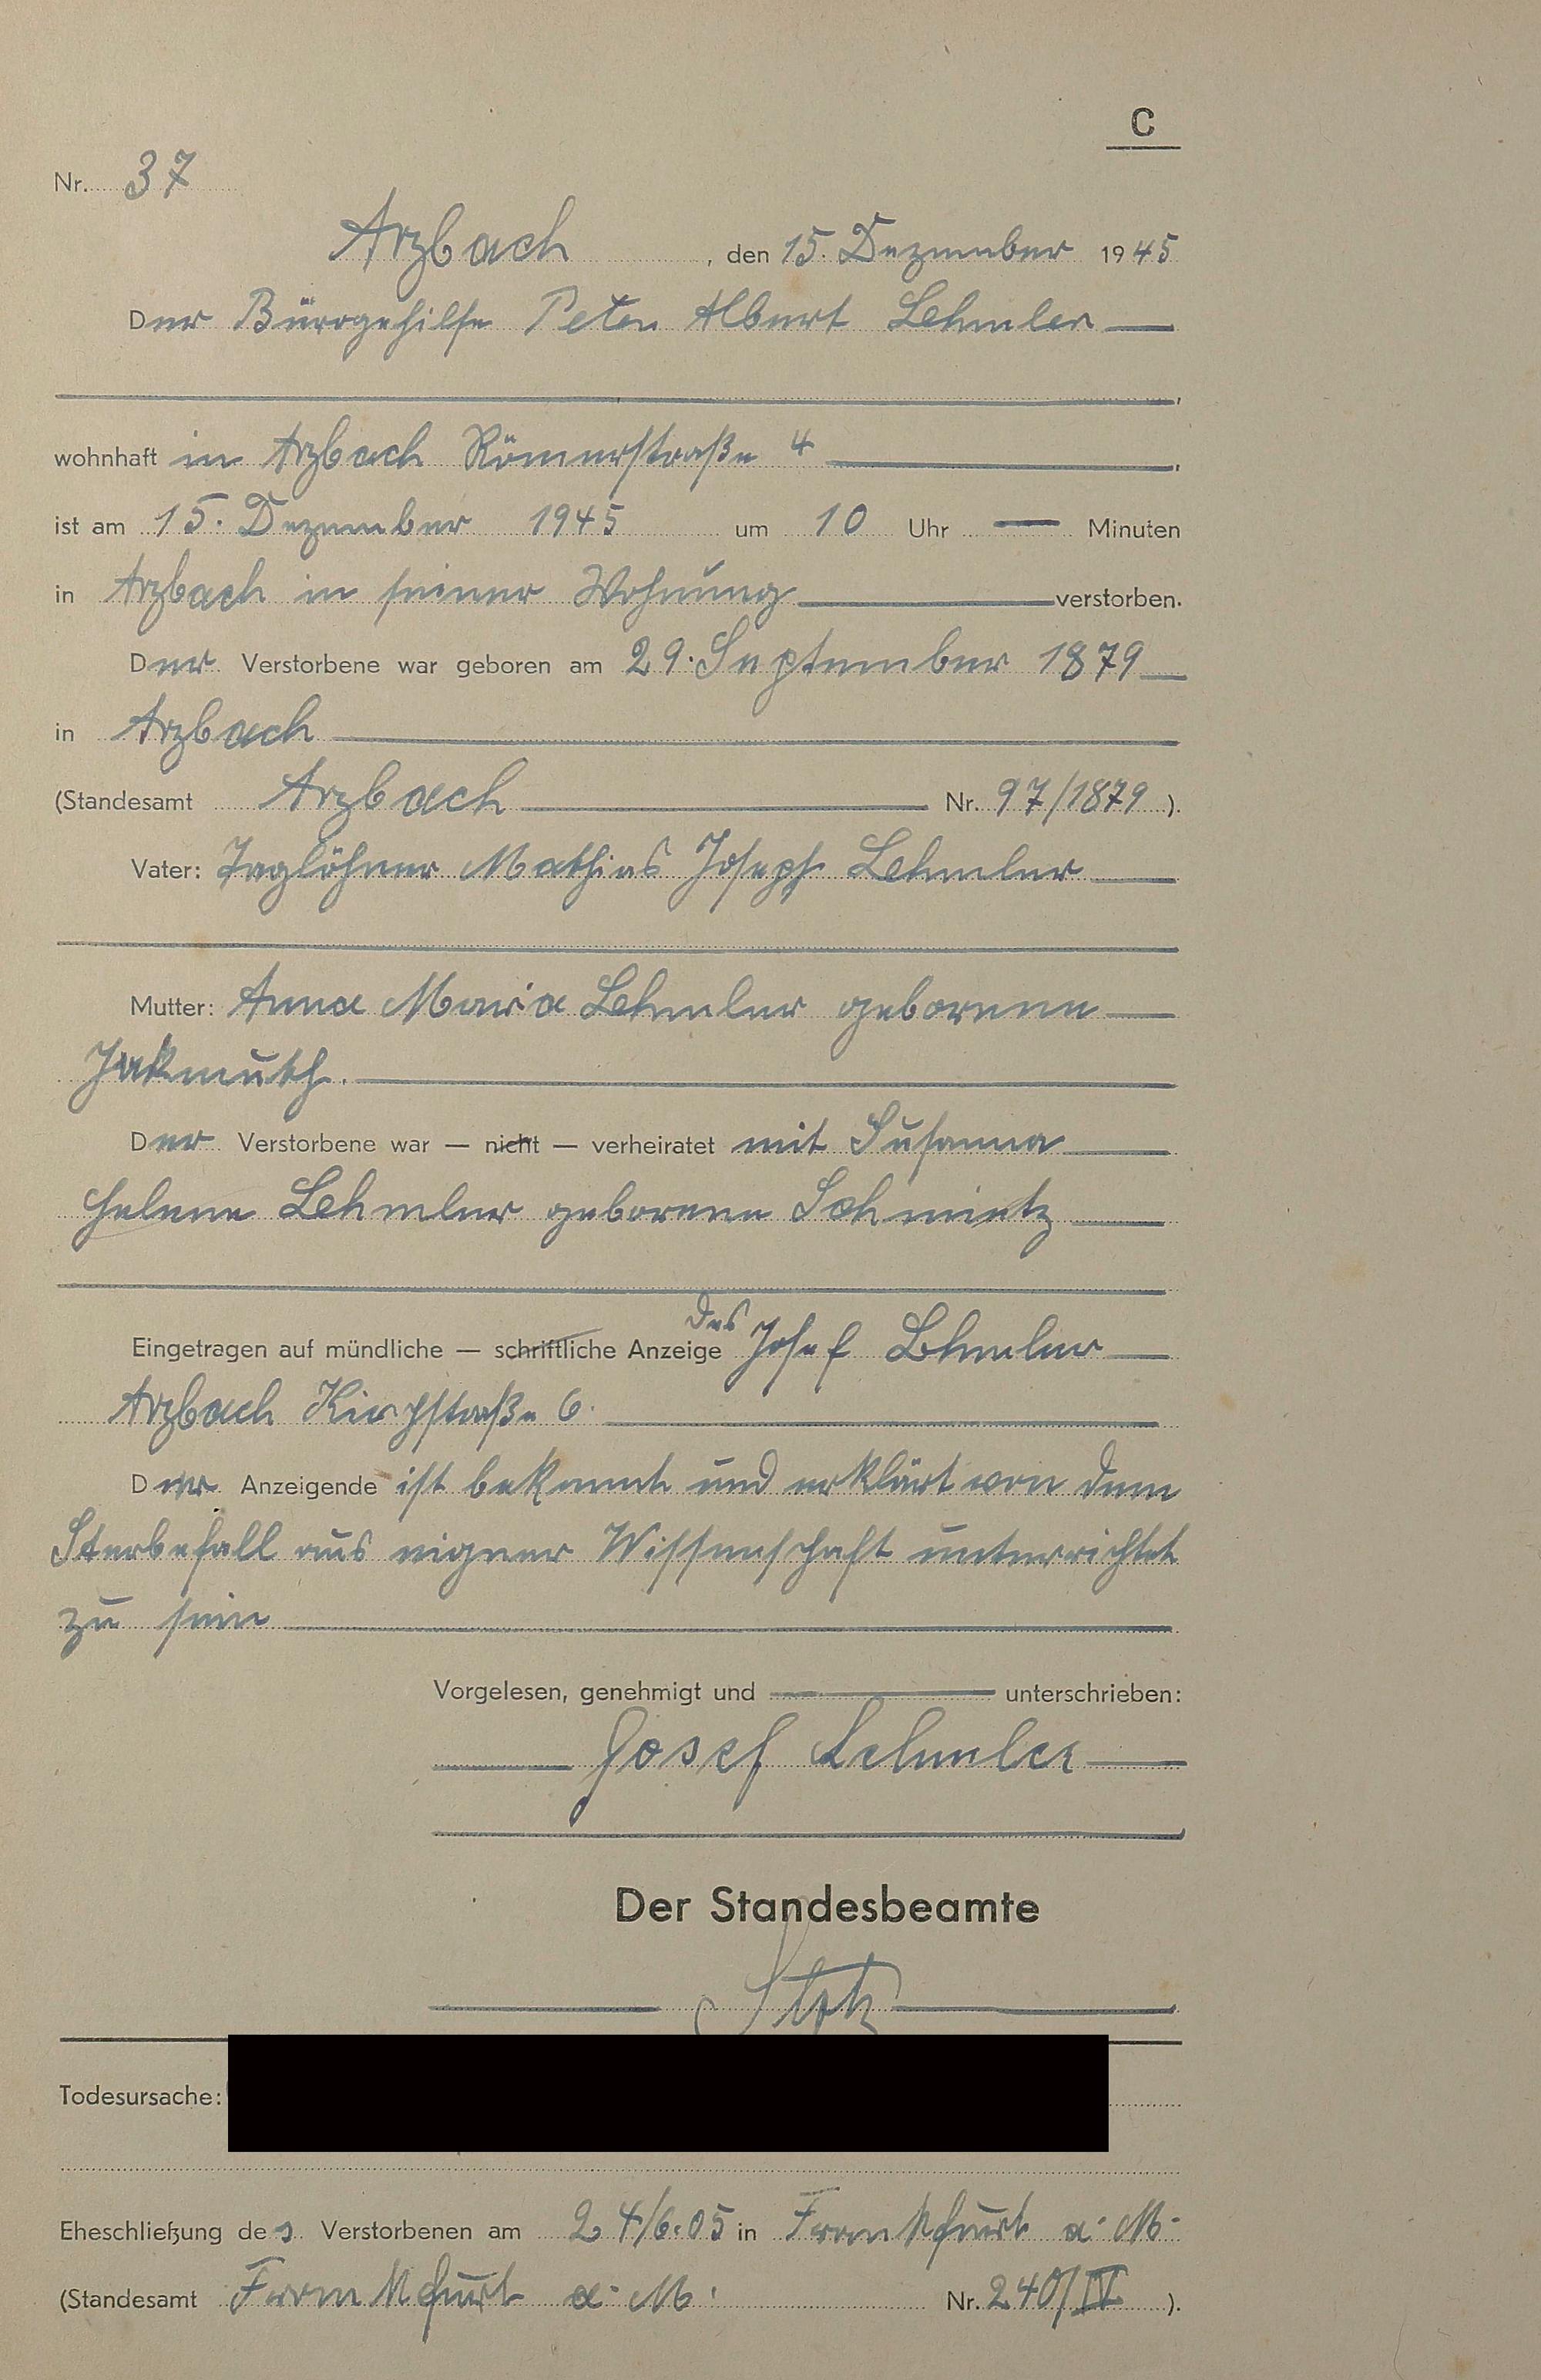 C
Nr. 37
Arzbach, den 15. Dezember 1945
Der Bürogehilfe Peter Albert Lehmler
wohnhaft in Arzbach Römerstraße 4
ist am 15. Dezember 1945 um 10 Uhr — Minuten
in Arzbach in seiner Wohnung verstorben.
Der Verstorbene war geboren am 29. September 1879
in Arzbach
(Standesamt Arzbach Nr. 97/1879).
Vater: Taglöhner Mathias Joseph Lehmler
Mutter: Anna Maria Lehmler geborene
Jakmuth.
Der Verstorbene war — nicht — verheiratet mit Susanna
Helene Lehmler geborene Schmietz
Eingetragen auf mündliche — schriftliche Anzeige des Josef Lehmler
Arzbach Kirchstraße 6.
Der Anzeigende ist bekannt und erklärt von dem
Sterbefall aus eigner Wissenschaft unterrichtet
zu sein
Vorgelesen, genehmigt und unterschrieben:
Josef Lehmler
Der Standesbeamte
Todesursache:
Eheschließung des Verstorbenen am 24/6.05 in Frankfurt a. M.
(Standesamt Frankfurt a. M. Nr. 240/IV).